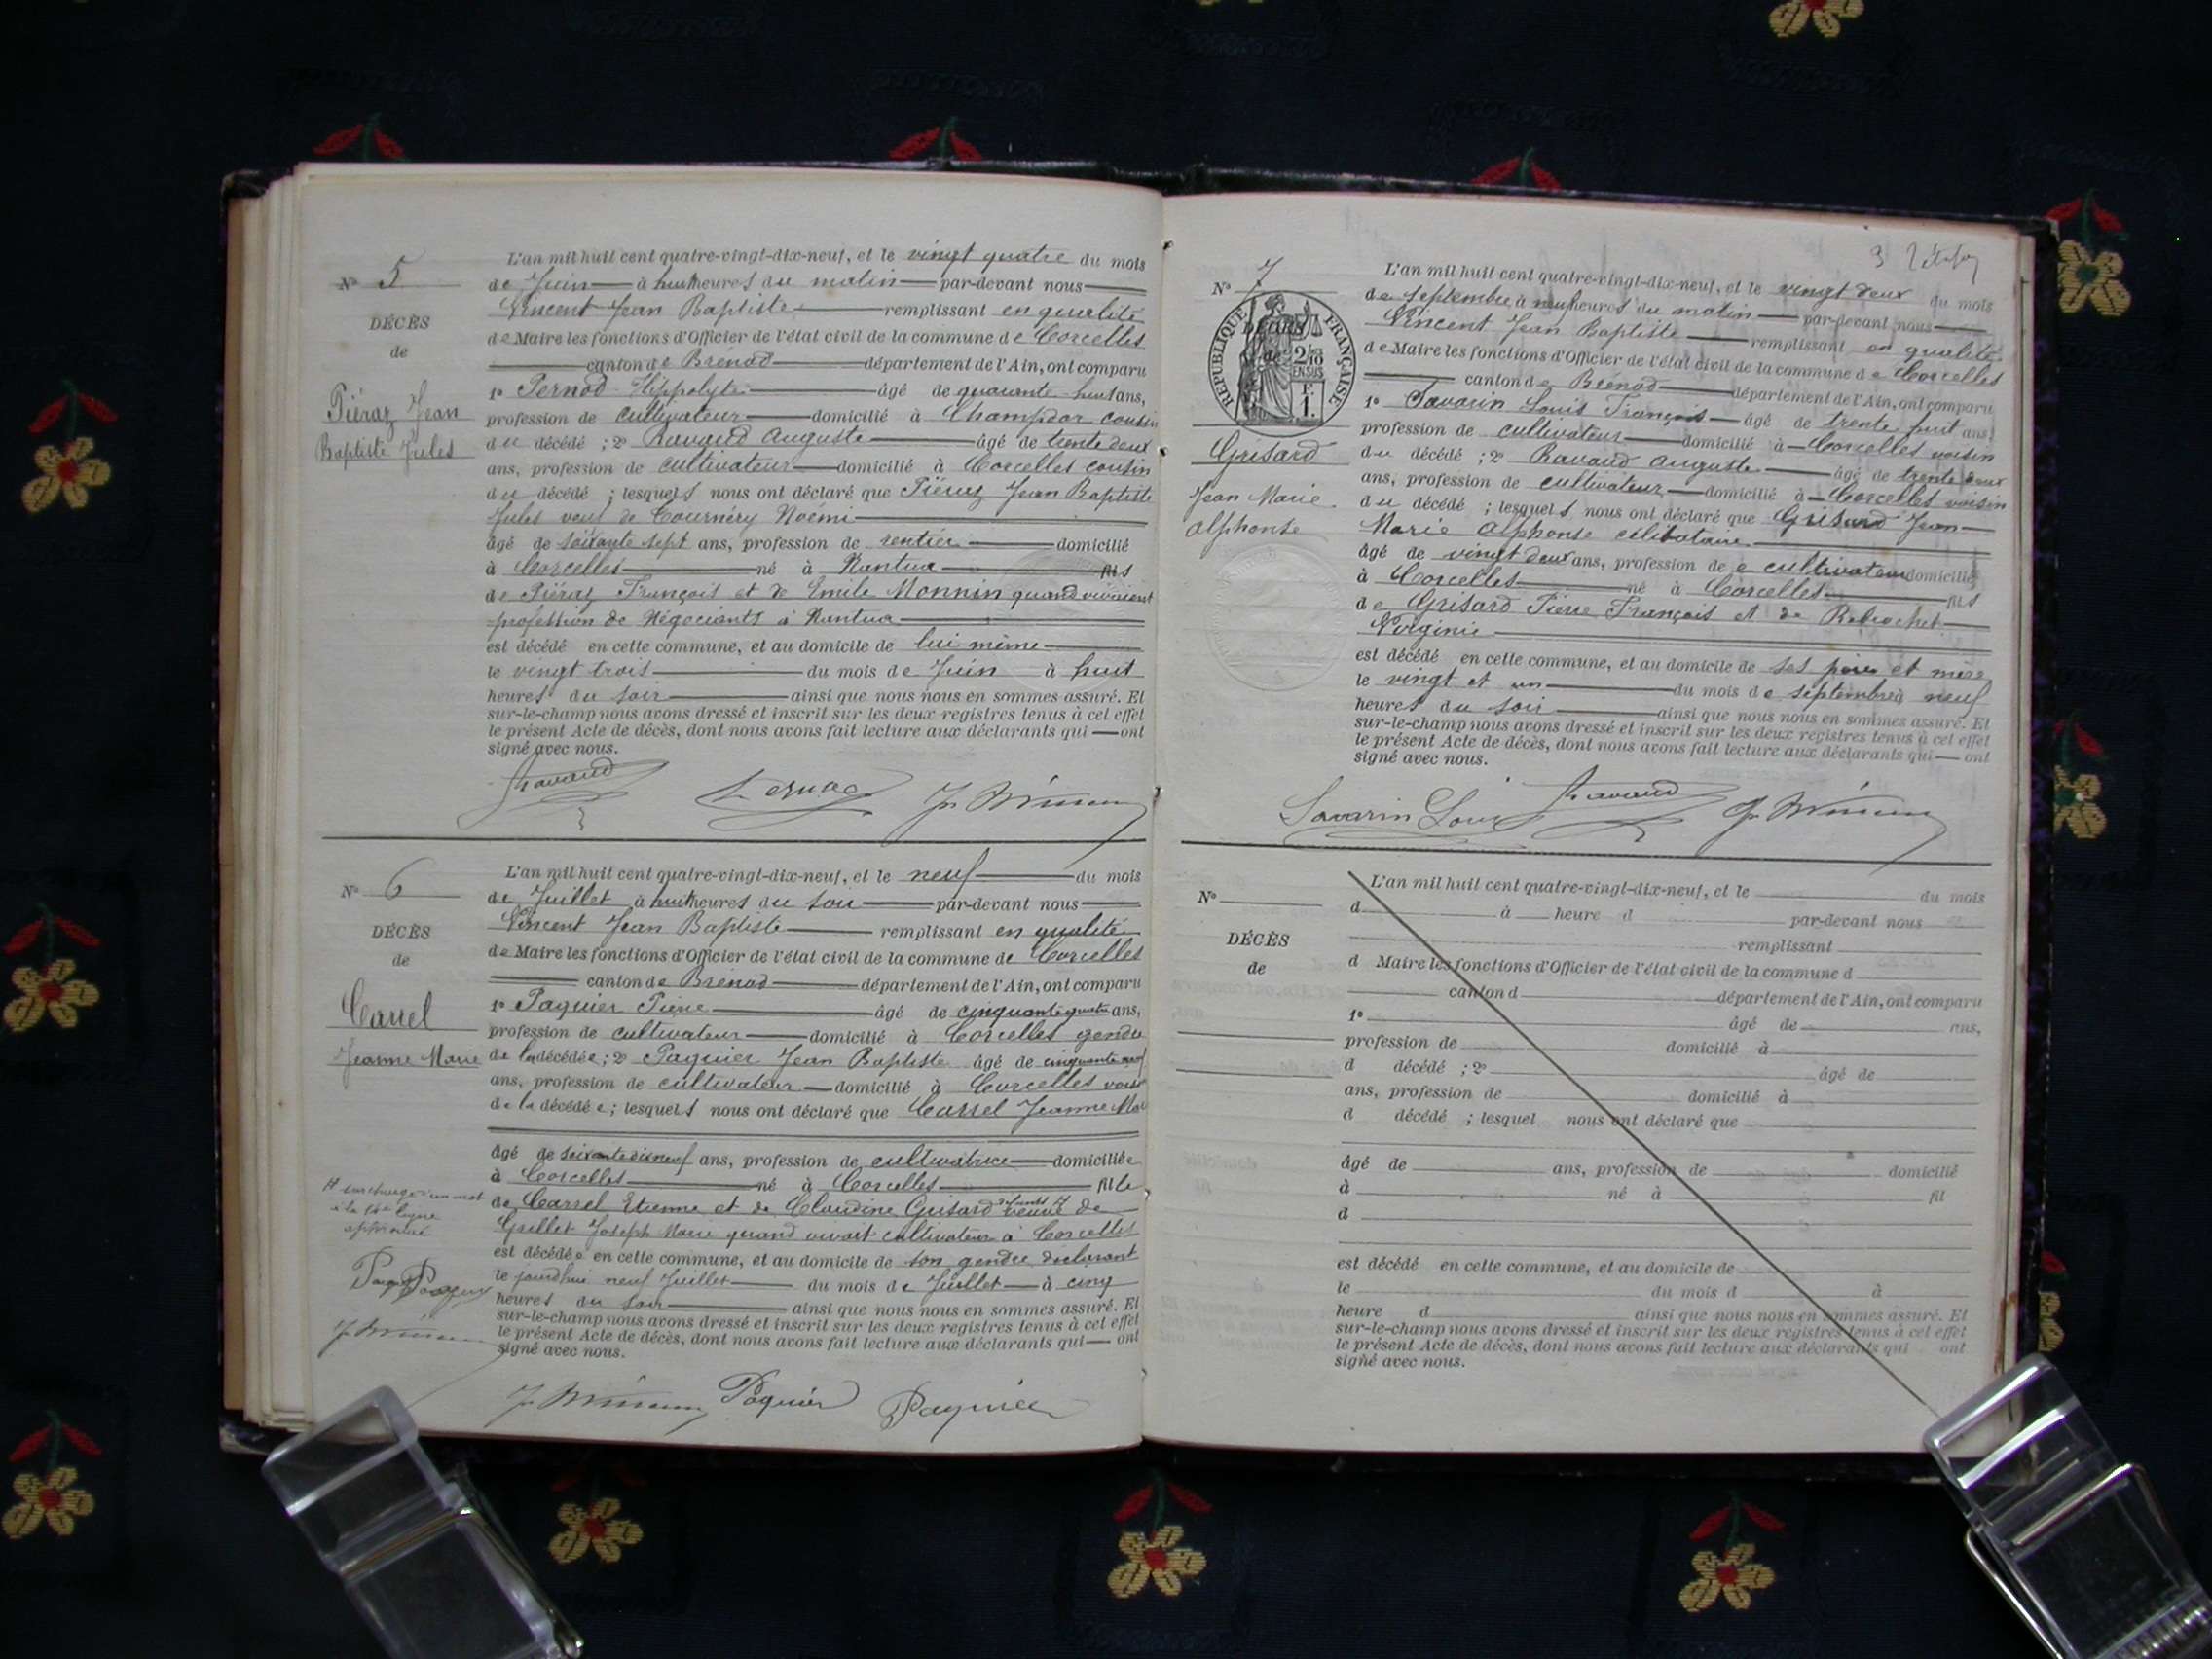 L'an mil huit cent quatre-vingt-dix-neuf, et le vingt quatre du mois
N° 5
de Juin à huit heures du matin par-devant nous
Vincent Jean Baptiste remplissant en qualité
DÉCÈS
de Maire les fonctions d'Officier de l'état civil de la commune de Corcelles
de
canton de Brénod département de l'Ain, ont comparu
1° Pernod Hippolyte âgé de quarante huit ans,
Piéraz Jean
profession de cultivateur domicilié à Champdor cousin
Baptiste Jules
du décédé ; 2° Ravaud Auguste âgé de trente deux
ans, profession de cultivateur domicilié à Corcelles cousin
du décédé ; lesquels nous ont déclaré que Piéraz Jean Baptiste
Jules veuf de Tournéry Noémi
âgé de soixante sept ans, profession de rentier domicilié
à Corcelles né à Nantua fils
de Piéraz François et de Emile Monnin quand vivaient
profession de Négociants à Nantua
est décédé en cette commune, et au domicile de lui même
le vingt trois du mois de Juin à huit
heures du soir ainsi que nous nous en sommes assuré. Et
sur-le-champ nous avons dressé et inscrit sur les deux registres tenus à cet effet
le présent Acte de décès, dont nous avons fait lecture aux déclarants qui ont
signé avec nous.
Ravaud Pernod J. Vincent
L'an mil huit cent quatre-vingt-dix-neuf, et le neuf du mois
N° 6
de Juillet à huit heures du soir par-devant nous
Vincent Jean Baptiste remplissant en qualité
DÉCÈS
de Maire les fonctions d'Officier de l'état civil de la commune de Corcelles
de
canton de Brénod département de l'Ain, ont comparu
Carrel
1° Paquier Pierre âgé de cinquante quatre ans,
profession de cultivateur domicilié à Corcelles gendre
Jeanne Marie
de la décédée ; 2° Paquier Jean Baptiste âgé de cinquante neuf
ans, profession de cultivateur domicilié à Corcelles voisin
de la décédée ; lesquels nous ont déclaré que Carrel Jeanne Marie
âgé de soixante dix neuf ans, profession de cultivatrice domiciliée
à Corcelles né à Corcelles fille
de Carrel Etienne et de Claudine Grisard défunts veuve de
Grillet Joseph Marie quand vivait cultivateur à Corcelles
surcharge d'un mot
à la ligne
approuvé
est décédée en cette commune, et au domicile de son gendre déclarant
le jourdhui neuf Juillet du mois de Juillet à cinq
heures du soir ainsi que nous nous en sommes assuré. Et
sur-le-champ nous avons dressé et inscrit sur les deux registres tenus à cet effet
le présent Acte de décès, dont nous avons fait lecture aux déclarants qui ont
signé avec nous.
Paquier
J. Vincent
J. Vincent Paquier Paquier
3
L'an mil huit cent quatre-vingt-dix-neuf, et le vingt deux du mois
N° 7
de septembre à neuf heures du matin par-devant nous
Vincent Jean Baptiste remplissant en qualité
DÉCÈS
de
RÉPUBLIQUE FRANÇAISE
2/10
EN SUS
F.
1.
de Maire les fonctions d'Officier de l'état civil de la commune de Corcelles
canton de Brénod département de l'Ain, ont comparu
1° Savarin Louis François âgé de trente huit ans,
profession de cultivateur domicilié à Corcelles voisin
Grisard
du décédé ; 2° Ravaud Auguste âgé de trente deux
ans, profession de cultivateur domicilié à Corcelles voisin
Jean Marie
du décédé ; lesquels nous ont déclaré que Grisard Jean
alphonse
Marie Alphonse célibataire
âgé de vingt deux ans, profession de cultivateur domicilié
à Corcelles né à Corcelles fils
de Grisard Pierre François et de Rebrochet
Virginie
est décédé en cette commune, et au domicile de ses père et mère
le vingt et un du mois de septembre à neuf
heures du soir ainsi que nous nous en sommes assuré. Et
sur-le-champ nous avons dressé et inscrit sur les deux registres tenus à cet effet
le présent Acte de décès, dont nous avons fait lecture aux déclarants qui ont
signé avec nous.
Savarin Louis Ravaud J. Vincent
L'an mil huit cent quatre-vingt-dix-neuf, et le du mois
N°
d à heure d par-devant nous
remplissant
DÉCÈS
d Maire les fonctions d'Officier de l'état civil de la commune d
de
canton d département de l'Ain, ont comparu
1° âgé de ans,
profession de domicilié à
d décédé ; 2° âgé de
ans, profession de domicilié à
d décédé ; lesquel nous ont déclaré que
âgé de ans, profession de domicilié
à né à fil
d
est décédé en cette commune, et au domicile de
le du mois d à
heure d ainsi que nous nous en sommes assuré. Et
sur-le-champ nous avons dressé et inscrit sur les deux registres tenus à cet effet
le présent Acte de décès, dont nous avons fait lecture aux déclarants qui ont
signé avec nous.